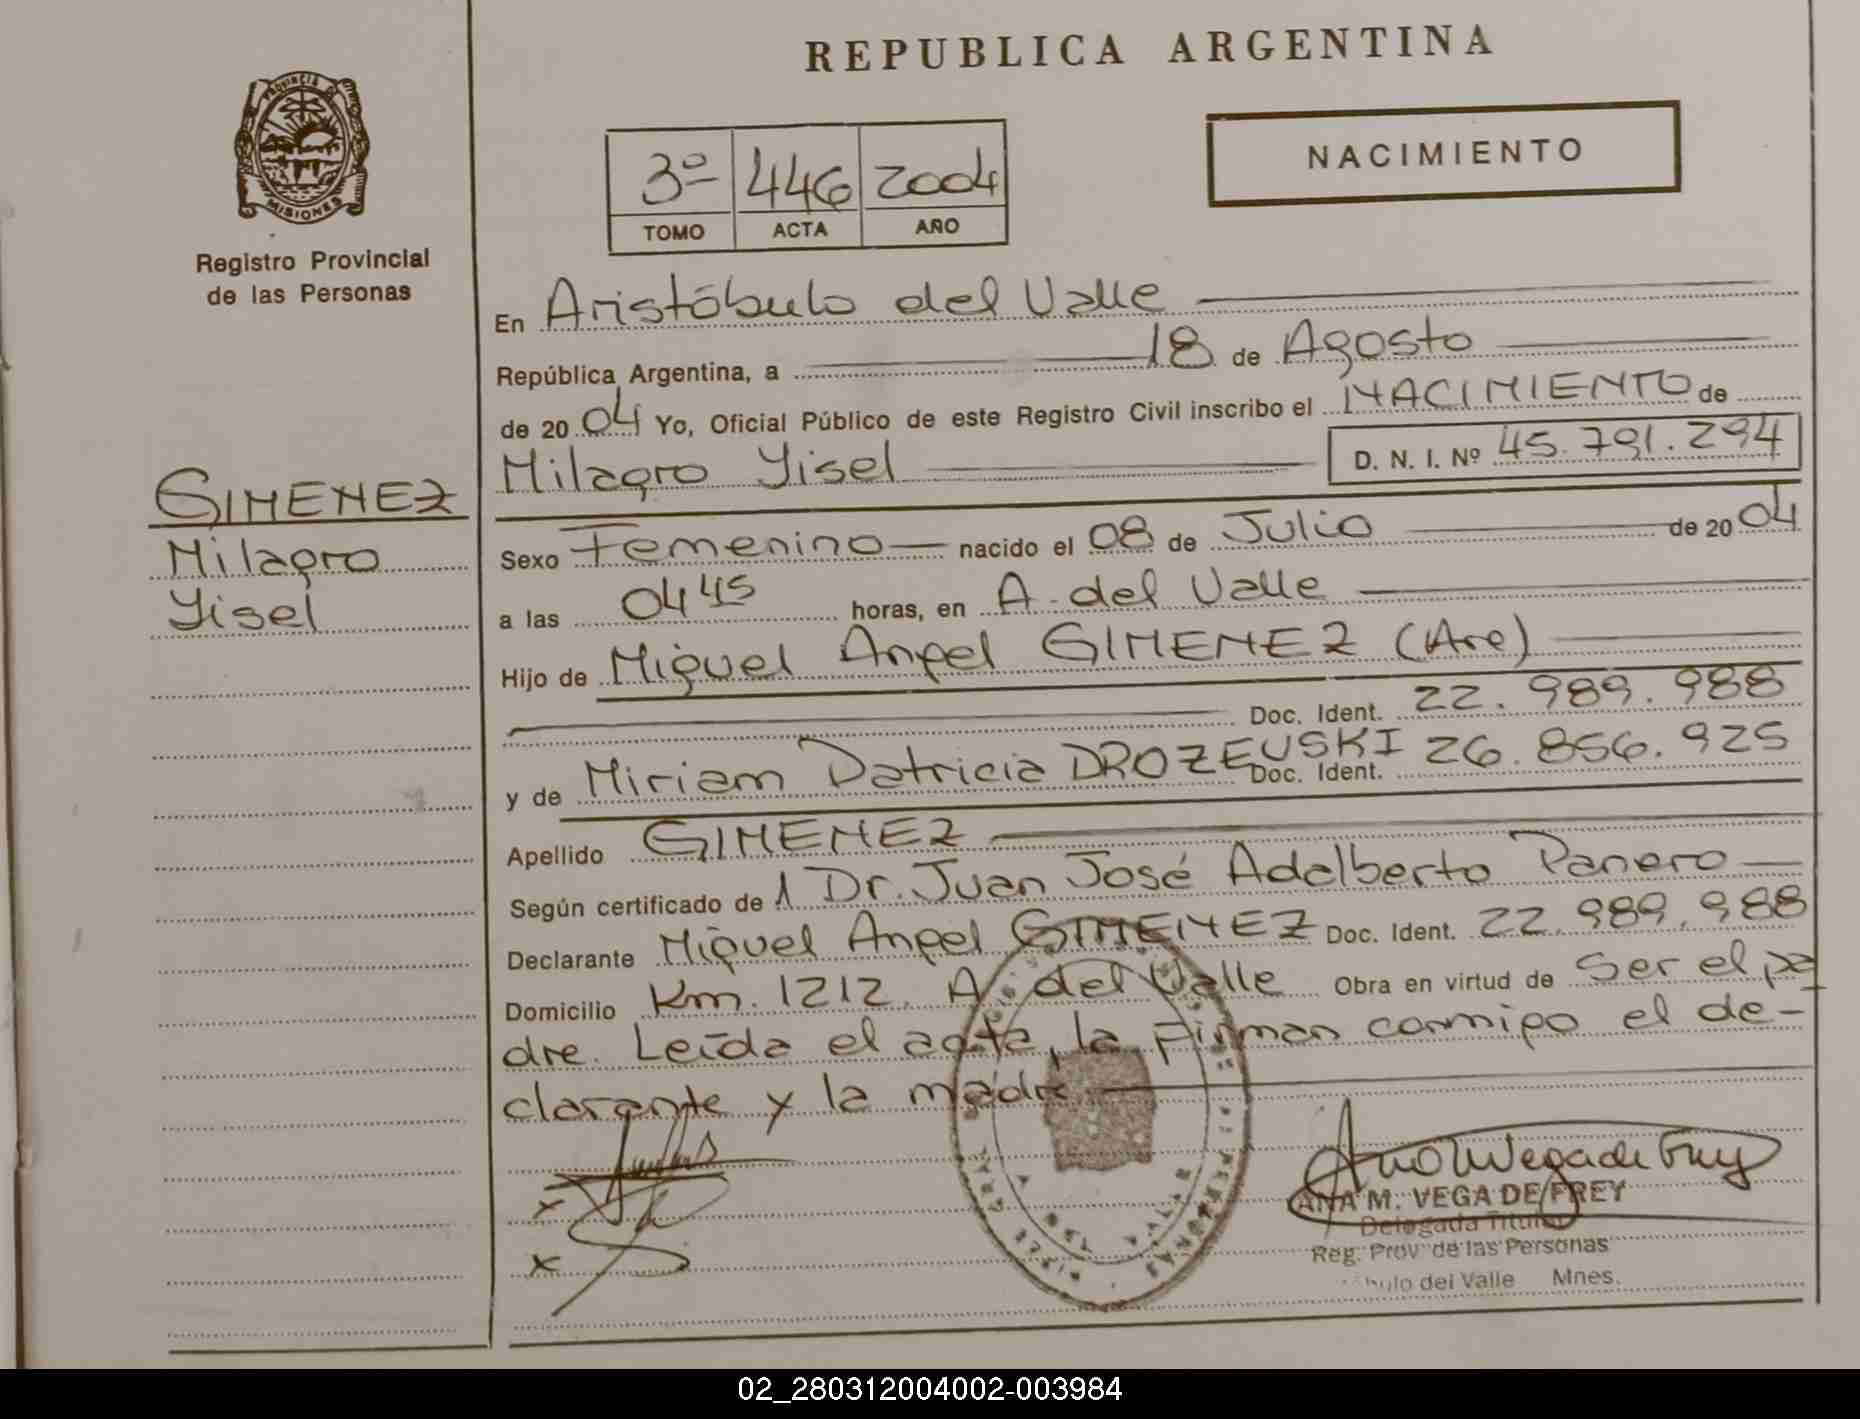 REPUBLICA ARGENTINA
PROVINCIA DE
MISIONES
Registro Provincial
de las Personas
3º 446 2004
TOMO ACTA AÑO
NACIMIENTO
En Aristóbulo del Valle
República Argentina, a 18 de Agosto
de 2004 Yo, Oficial Público de este Registro Civil inscribo el NACIMIENTO de
Milagro Yisel D. N. I. Nº 45.791.294
GIMENEZ
Milagro
Yisel
Sexo Femenino nacido el 08 de Julio de 2004
a las 04 45 horas, en A. del Valle
Hijo de Miguel Angel GIMENEZ (Are)
Doc. Ident. 22.989.988
y de Miriam Patricia DROZEUSKI Doc. Ident. 26.856.925
Apellido GIMENEZ
Según certificado de 1 Dr. Juan José Adalberto Panero
Declarante Miguel Angel GIMENEZ Doc. Ident. 22.989.988
Domicilio Km. 1212. A. del Valle Obra en virtud de Ser el pa
dre. Leída el acta, la firman conmigo el de-
clarante y la madre
x
x
Ana M Vega de Frey
ANA M. VEGA DE FREY
Delegada Titular
Reg. Prov. de las Personas
bulo del Valle Mnes.
02_280312004002-003984